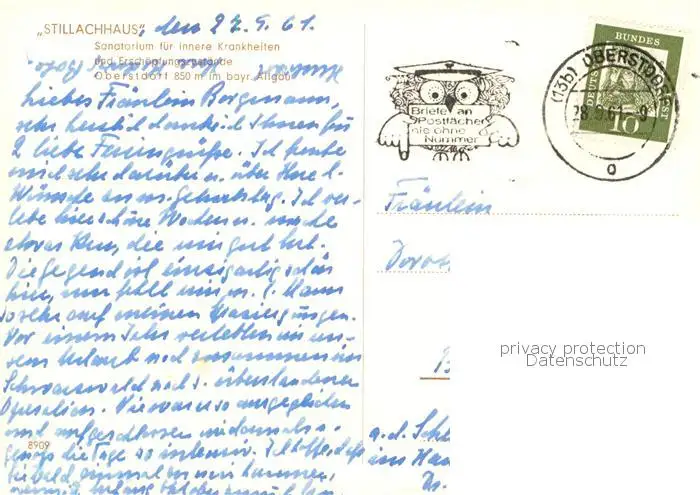 „STILLACHHAUS“, den 27.9.61.
Sanatorium für innere Krankheiten
und Erschöpfungszustände
Oberstdorf 850 m im bayr. Allgäu
Liebes Fräulein Borgmann,
sehr herzl. danke ich Ihnen für
2 liebe Feriengrüße. Ich freute
mich sehr darüber u. über Ihre l.
Wünsche zu m. Geburtstag. Ich ver-
lebe hier schöne Wochen u. mache
etwas Kur, die mir gut tut.
Die Gegend ist einzigartig schön
hier, nur fehlt mir m. l. Mann
so sehr auf meinen Spaziergängen.
Vor einem Jahr verlebten wir un-
sern Urlaub noch zusammen im
Schwarzwald nach s. überstandenen
Operation. Wie war er so ausgeglichen
und aufgeschlossen u. damals
genoß die Tage so intensiv. Ich hoffe, daß
Sie bald einmal zu mir kommen,
8909
Briefe an
Postfächer
nie ohne
Nummer
(13b) OBERSTDORF
28.9.61-9
a
DEUTSCHE BUNDESPOST
10
Fräulein
Dorot
B
privacy protection
Datenschutz
a.d. Schl
im Hau